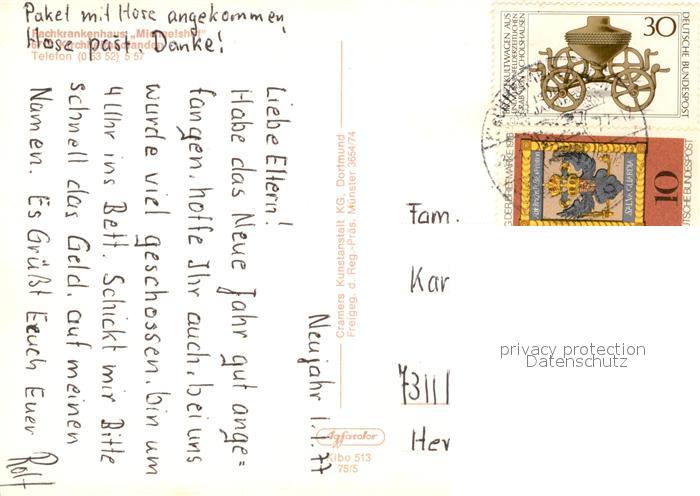 Paket mit Hose angekommen
Hose paßt. Danke!
Fachkrankenhaus
Telefon (0 63 52) 5 57
Neujahr 1.1.77
Liebe Eltern!
Habe das Neue Jahr gut ange=
fangen, hoffe Ihr auch, bei uns
wurde viel geschossen, bin um
4 Uhr ins Bett. Schickt mir Bitte
schnell das Geld, auf meinen
Namen. Es Grüßt Eeuch Euer Rolf
Cramers Kunstanstalt KG., Dortmund
Freigeg. d. Reg.-Präs. Münster 3654/74
Agfacolor
Kibo 513
75/5
30
DEUTSCHE BUNDESPOST
10
DEUTSCHE BUNDESPOST
Fam.
Kar
7311
Her
privacy protection
Datenschutz